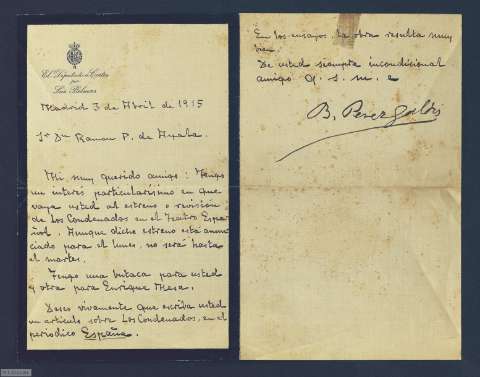 El Diputado a Cortes
por
Las Palmas
Madrid 3 de Abril de 1915
Sr Dn Ramon P. de Ayala.
Mi muy querido amigo: Tengo
un interés particularísimo en que
vaya usted al estreno o revisión
de Los Condenados en el Teatro Espa-
ñol. Aunque dicho estreno está anun-
ciado para el lunes, no será hasta
el martes.
Tengo una butaca para usted
y otra para Enrique Mesa.
Deseo vivamente que escriba usted
un artículo sobre Los Condenados, en el
periodico España.
En los ensayos, la obra resulta muy
bien.
De usted siempre incondicional
amigo q. s. m. e
B. Perez Galdós